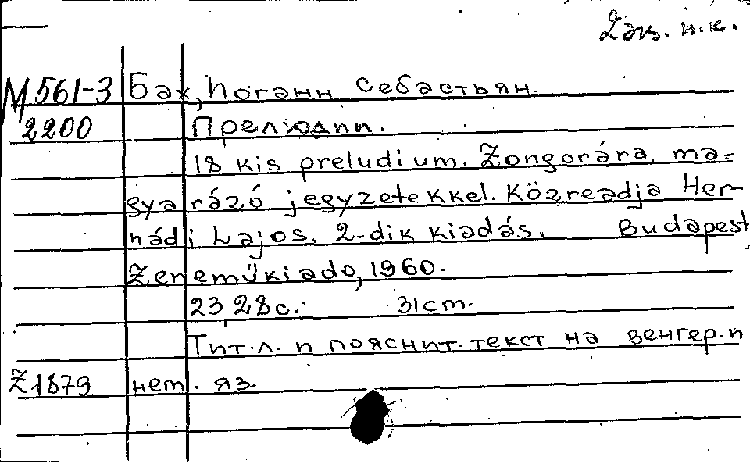 2эк. н.к.
М 561-3 Бах, Иоганн Себастьян.
2200 Прелюдии.
18 kis preludium. Zongorára, ma=
gyarázó jegyzetekkel. Közreadja Her-
nádi Lajos. 2-dik kiadás. Budapest
Zeneműkiado, 1960.
23 28 с. 31 cm.
Тит. л. и пояснит. текст на венгер. и
Z1879 нем. яз.